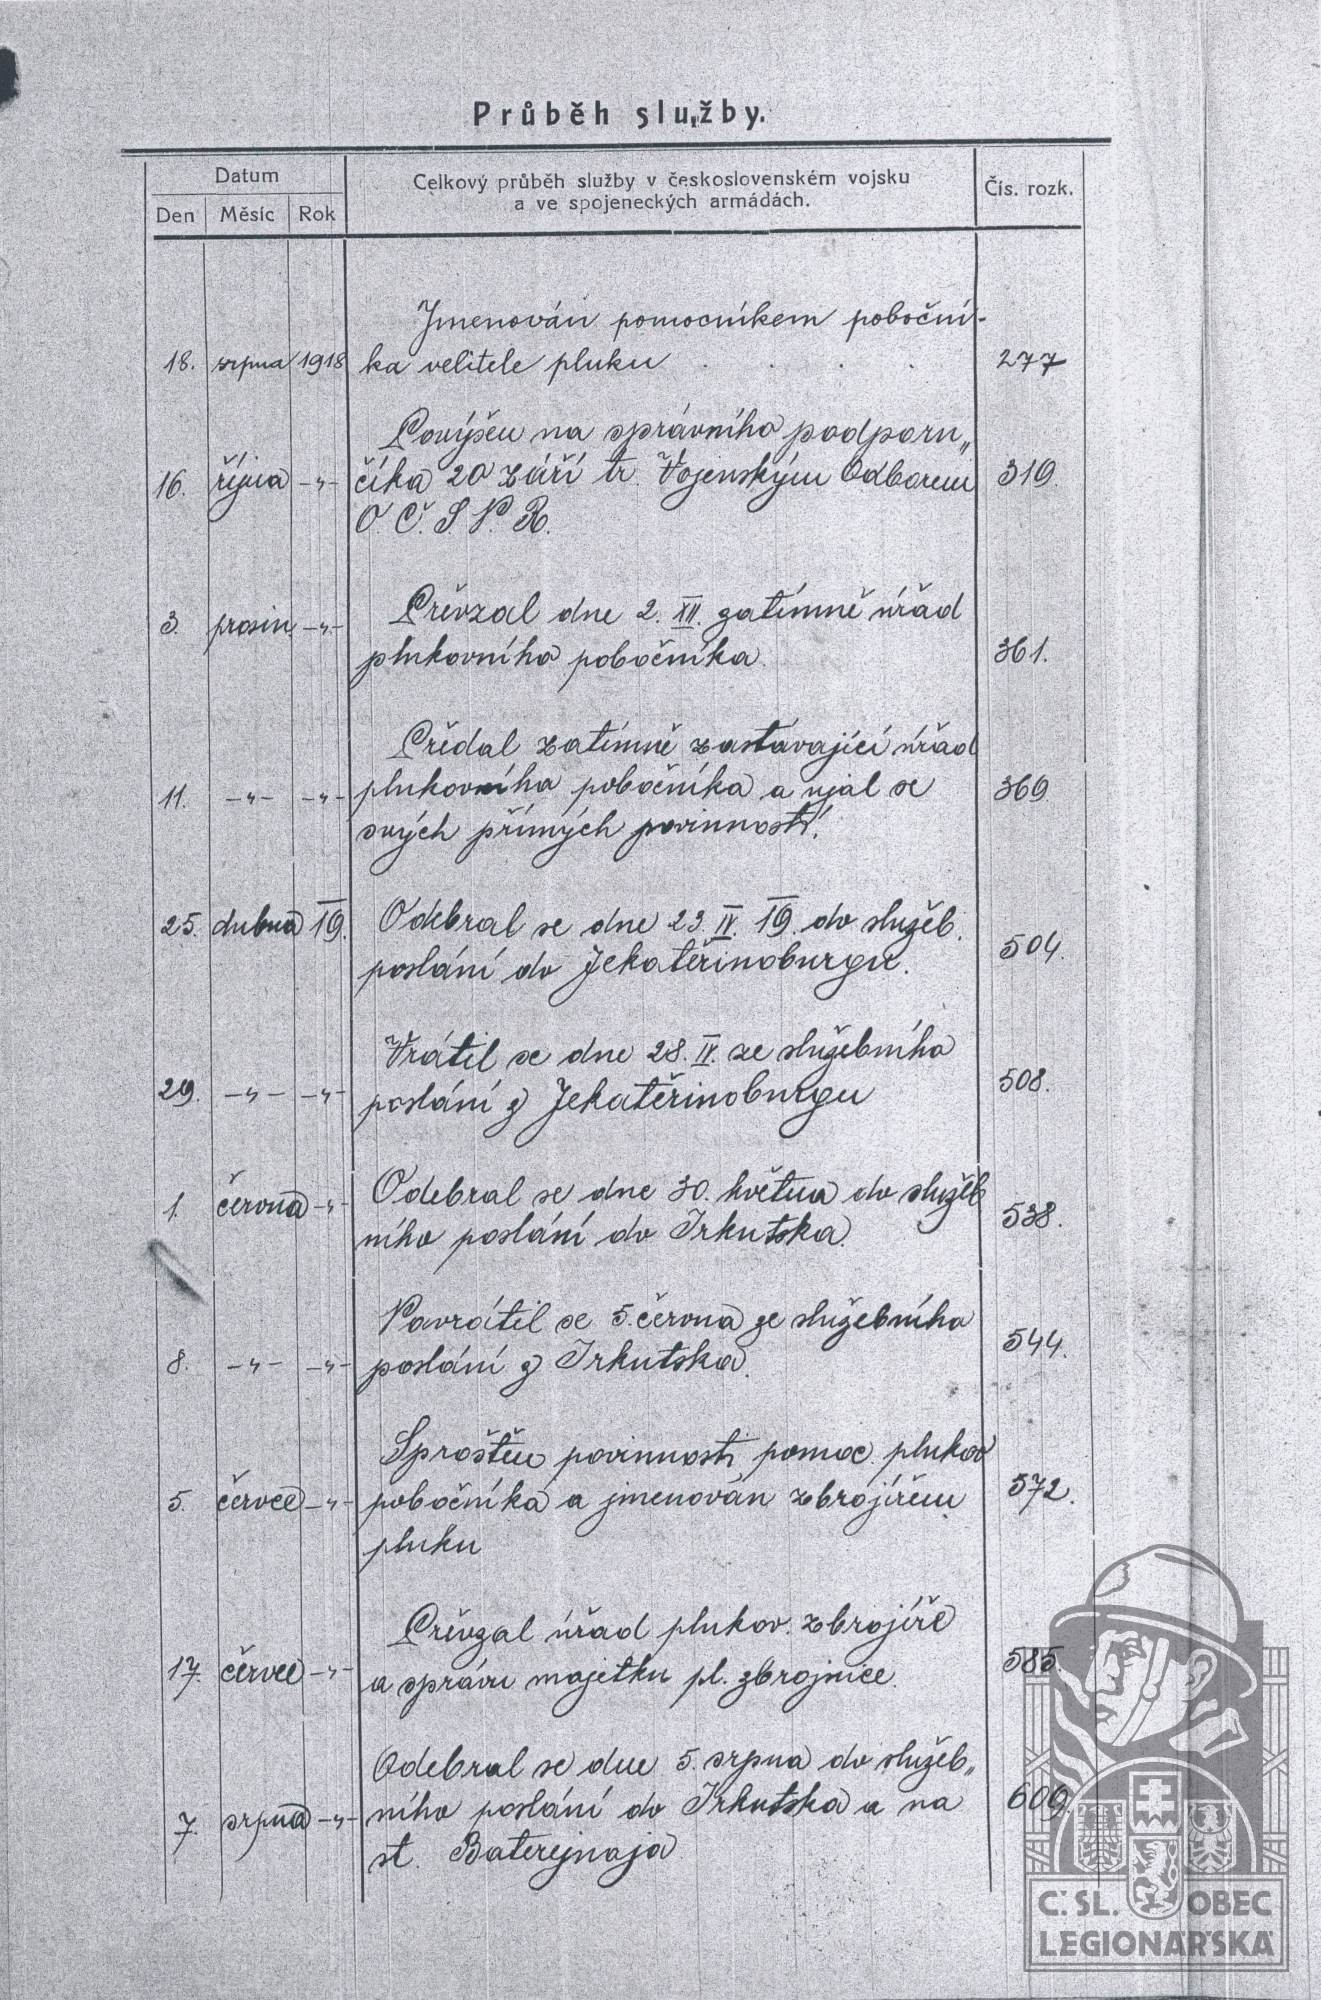 Průběh služby.
Datum
Celkový průběh služby v československém vojsku
a ve spojeneckých armádách.
Čís. rozk.
Den Měsíc Rok
Jmenován pomocníkem poboční-
18. srpna 1918 ka velitele pluku . . . . 277
Povýšen na správního podporu„
16. října -"- číka 20 září tr. Vojenským Odborem 319.
O. Č. S. N. R.
Převzal dne 2. XII. zatímně úřad
3. prosin. -"- plukovního pobočníka. 361.
Předal zatímně zastávající úřad
11. -"- -"- plukovního pobočníka a ujal se 369
svých přímých povinností.
25. dubna 19. Odebral se dne 23. IV. 19. do služeb. 504.
poslání do Jekatěřinoburgu.
Vrátil se dne 28. IV. ze služebního
29. -"- -"- poslání z Jekatěřinoburgu 508.
1. června -"- Odebral se dne 30. května do služeb 538.
ního poslání do Irkutska.
Navrátil se 5. června ze služebního
8. -"- -"- poslání z Irkutska. 544.
Sproštěn povinnosti pomoc. plukov
5. červce -"- pobočníka a jmenován zbrojířem 572.
pluku
Převzal úřad plukov. zbrojíře
17. červce -"- a správu majetku pl. zbrojnice. 585.
Odebral se dne 5. srpna do služeb„
7. srpna -"- ního poslání do Irkutska a na 609.
st. Baterejnaja
Č. SL. OBEC
LEGIONÁŘSKÁ